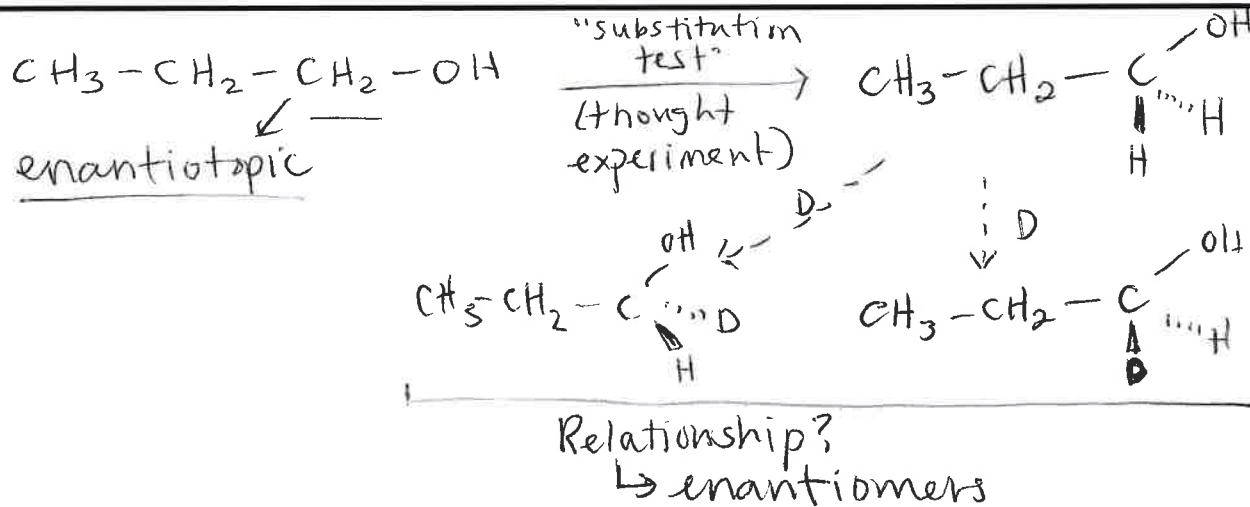 CH3-CH2-CH2-OH
enantiotopic
"substitution
test"
(thought
experiment)
CH3-CH2-C
OH
H
H
D
D
CH3-CH2-C
OH
D
H
CH3-CH2-C
OH
H
D
Relationship?
↳ enantiomers